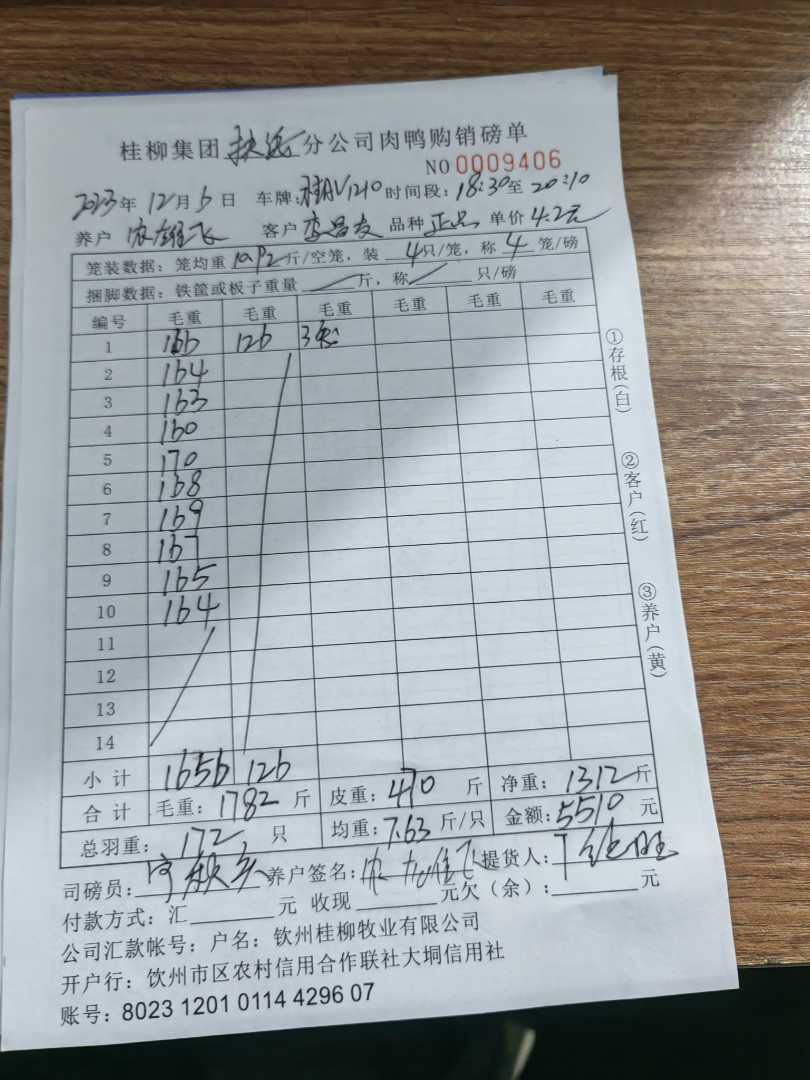 桂柳集团扶绥分公司肉鸭购销磅单
NO 0009406
2023年12月6日 车牌:桂AV1210 时间段:18:30至20:10
养户 农雄飞 客户 李昌友 品种 正品 单价 4.2元
笼装数据:笼均重10.92斤/空笼,装 4只/笼,称 4 笼/磅
捆脚数据:铁筐或板子重量 斤,称 只/磅
编号 毛重 毛重 毛重 毛重 毛重 毛重
1 166 126 3笼
2 164
3 163
4 160
5 170
6 168
7 169
8 167
9 165
10 164
11
12
13
14
小计 1656 126
合计 毛重:1782斤 皮重:470斤 净重:1312斤
总羽重:172只 均重:7.63斤/只 金额:5510元
司磅员: 养户签名: 提货人:
付款方式:汇 元 收现 元欠(余): 元
公司汇款帐号:户名:钦州桂柳牧业有限公司
开户行:钦州市区农村信用合作联社大垌信用社
账号:8023 1201 0114 4296 07
①存根(白)
②客户(红)
③养户(黄)